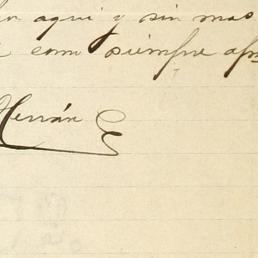 aquí y sin mas
como siempre afm
Herrán